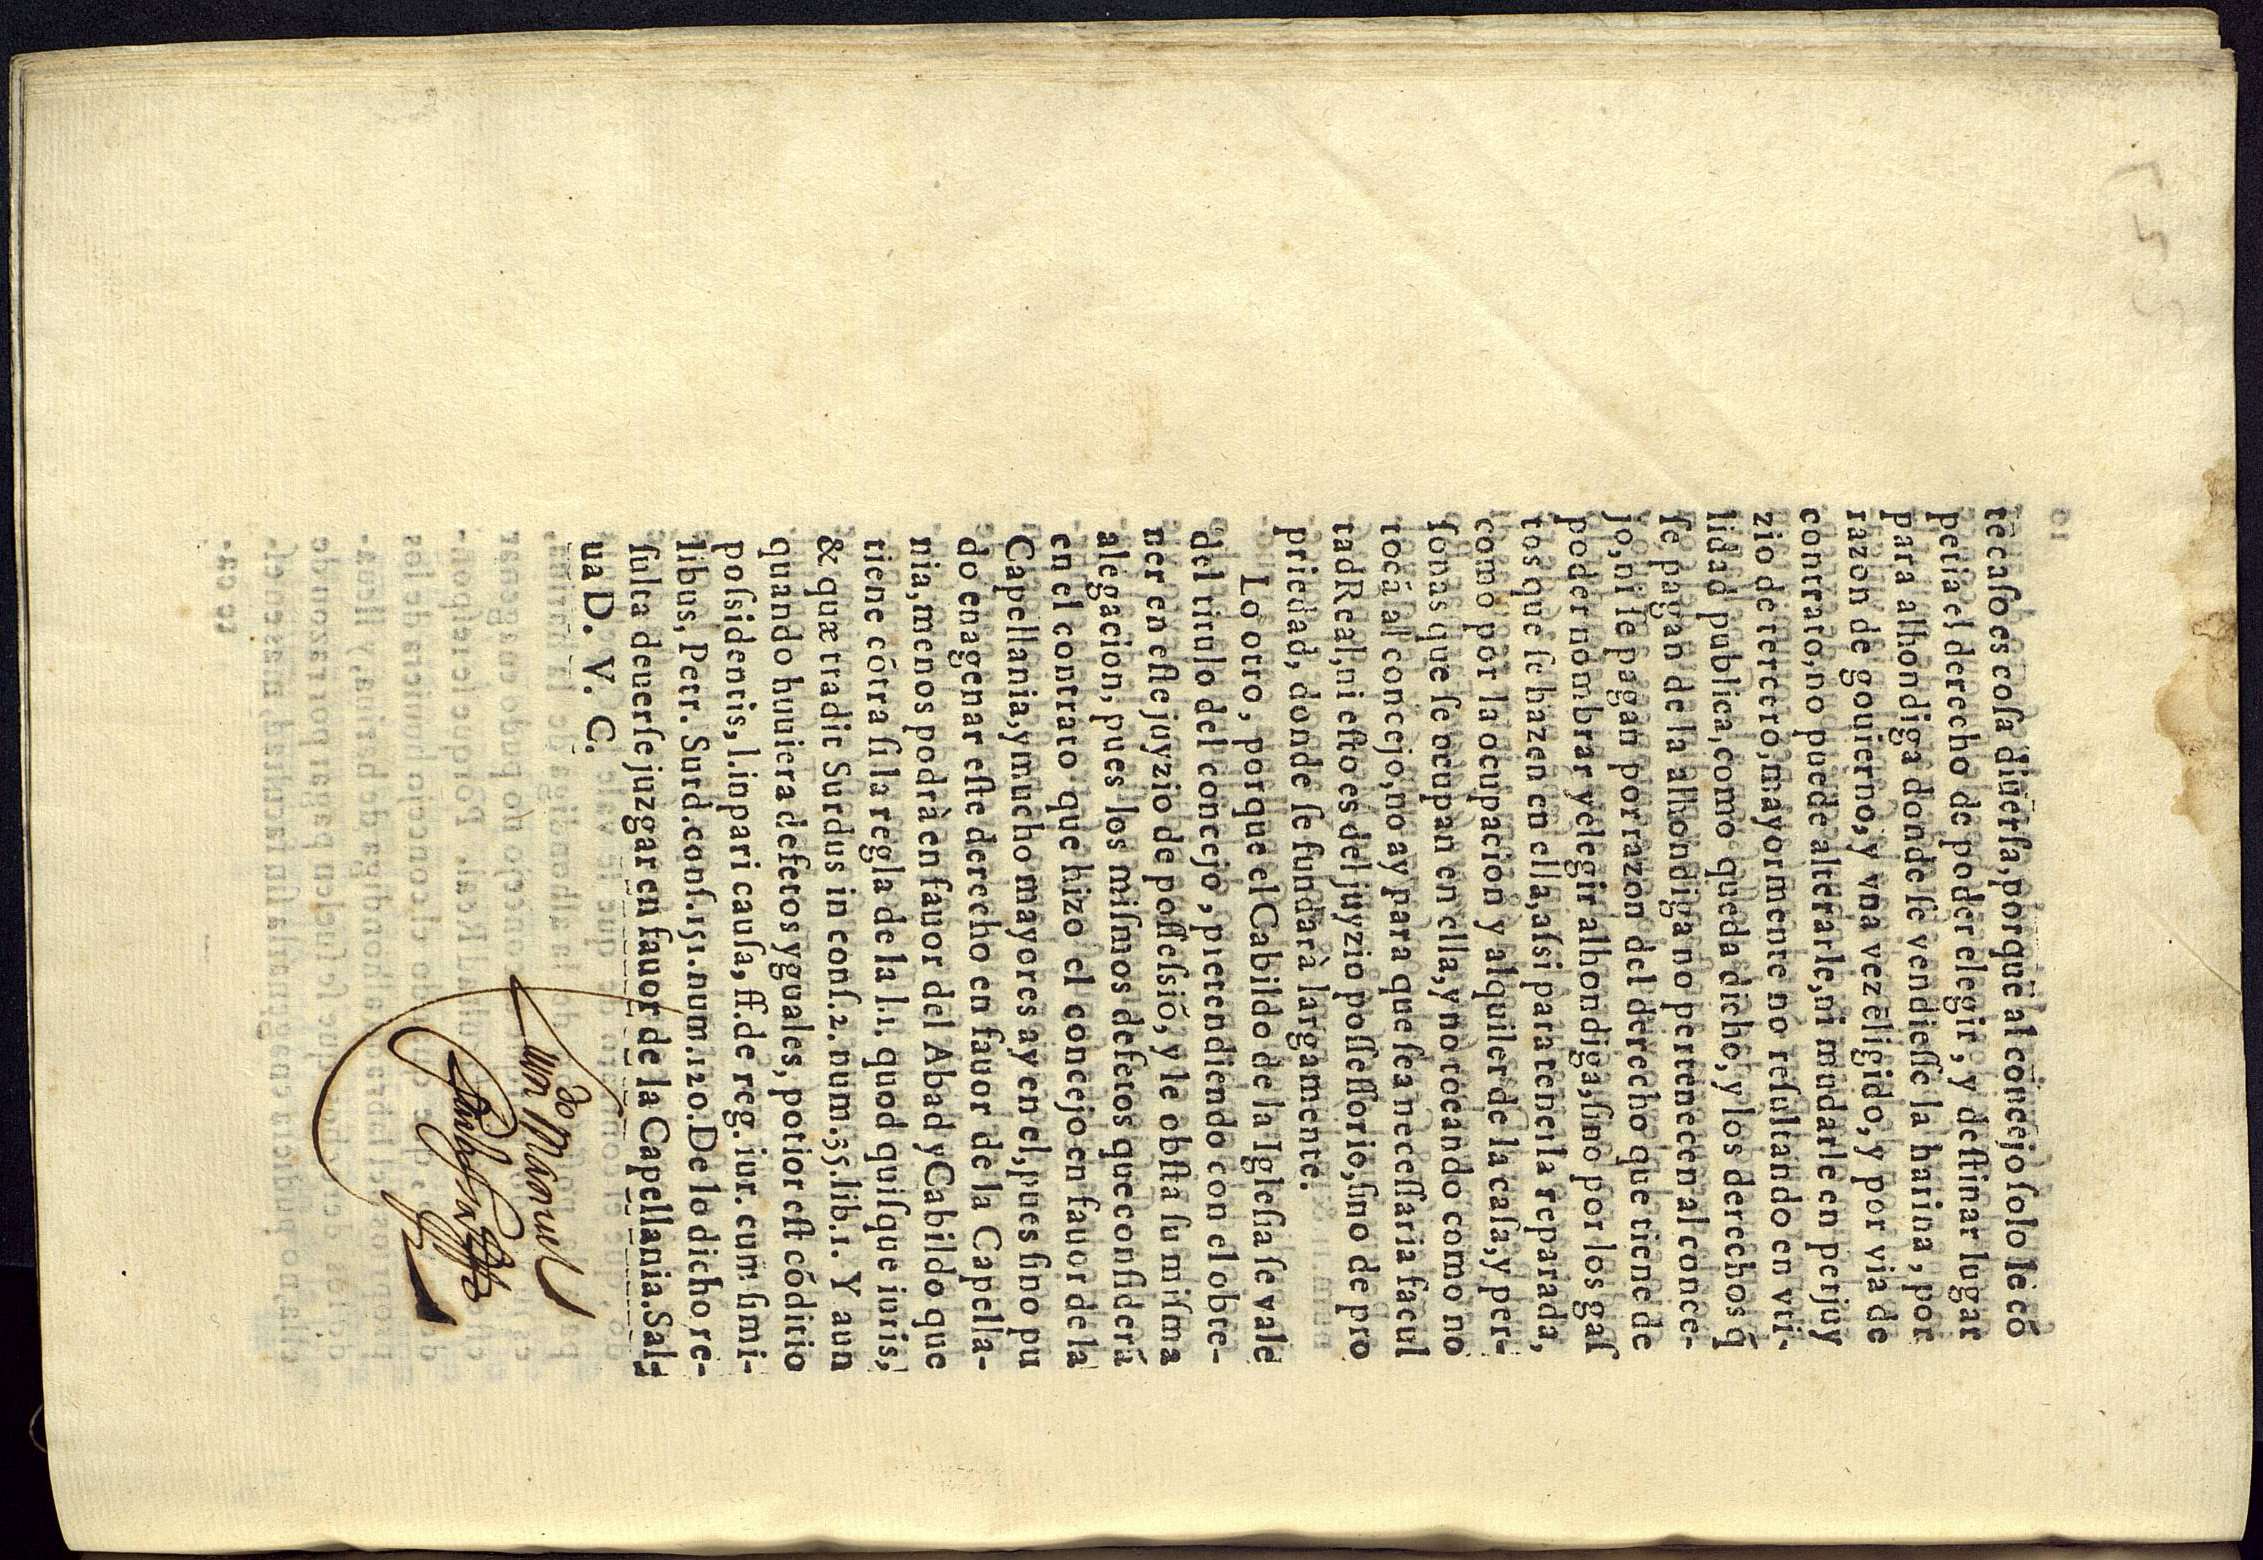 te caſo es coſa diuerſa, porque al concejo ſolo le cõ
petia el derecho de poder elegir, y deſtinar lugar
para alhondiga donde ſe vendieſſe la harina, por
razon de gouierno, y vna vez eligido, y por via de
contrato, no puede alterarle, ni mudarle en perjuy
zio de tercero, mayormente no reſultando en vti-
lidad publica, como queda dicho, y los derechos q̃
ſe pagan de la alhondiga no pertenecen al conce-
jo, ni ſe pagan por razon del derecho que tiene de
poder nombrar y elegir alhondiga, ſino por los gaſ
tos que ſe hazen en ella, aſsi para tenerla reparada,
como por la ocupacion y alquiler de la caſa, y per-
ſonas que ſe ocupan en ella, y no tocando como no
tocã al concejo, no ay para que ſea neceſſaria facul
tad Real, ni eſto es del juyzio poſſeſſorio, ſino de pro
priedad, donde ſe fundarà largamente.
Lo otro, porque el Cabildo de la Igleſia ſe vale
del titulo del concejo, pretendiendo con el obte-
ner en eſte juyzio de poſſeſsiõ, y le obſta ſu miſma
alegacion, pues los miſmos defetos que conſiderã
en el contrato que hizo el concejo en fauor de la
Capellania, y mucho mayores ay en el, pues ſi no pu
do enagenar eſte derecho en fauor de la Capella-
nia, menos podrà en fauor del Abad y Cabildo que
tiene cõtra ſi la regla de la l.1. quod quiſque iuris,
& quæ tradit Surdus in conſ.2. num.35. lib.1. Y aun
quando huuiera defetos yguales, potior eſt cõditio
poſsidentis, l. in pari cauſa, ff. de reg. iur. cum ſimi-
libus, Petr. Surd. conſ.151. num.120. De lo dicho re-
ſulta deuerſe juzgar en fauor de la Capellania. Sal-
ua D. V. C.